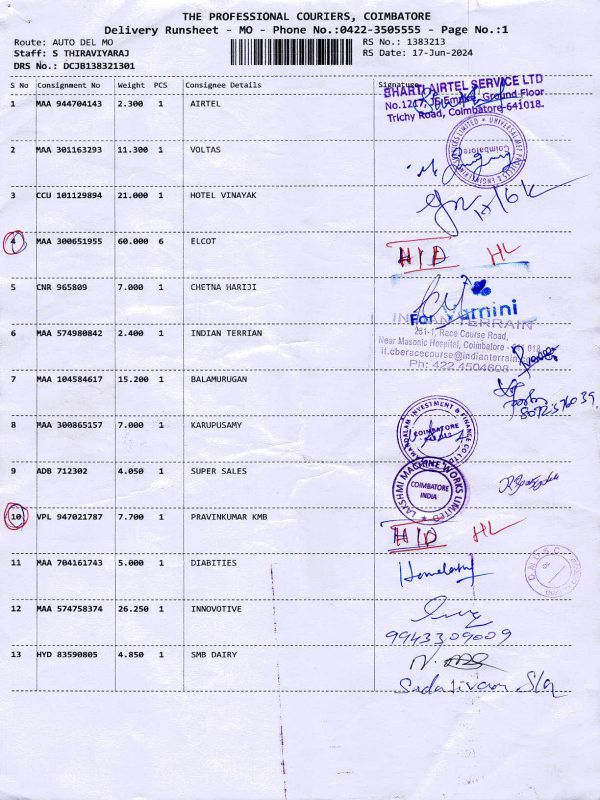 THE PROFESSIONAL COURIERS, COIMBATORE
Delivery Runsheet - MO - Phone No.:0422-3505555 - Page No.:1
Route: AUTO DEL MO RS No.: 1383213
Staff: S THIRAVIYARAJ RS Date: 17-Jun-2024
DRS No.: DCJB138321301
S No Consignment No Weight PCS Consignee Details Signature
BHARTI AIRTEL SERVICE LTD
1 MAA 944704143 2.300 1 AIRTEL
Ground Floor
Trichy Road, Coimbatore-641018.
2 MAA 301163293 11.300 1 VOLTAS
Coimbatore
3 CCU 101129894 21.000 1 HOTEL VINAYAK
4 MAA 300651955 60.000 6 ELCOT
H/D HL
5 CNR 965809 7.000 1 CHETNA HARIJI
For Yamini
INDIAN TERRAIN
6 MAA 574980842 2.400 1 INDIAN TERRIAN
Race Course Road,
Near Masonic Hospital, Coimbatore
it.cberacecourse@indianterrain
Ph: 422 4504608
7 MAA 104584617 15.200 1 BALAMURUGAN
8 MAA 300865157 7.000 1 KARUPUSAMY
INVESTMENT & FINANCE CO
COIMBATORE
9 ADB 712302 4.050 1 SUPER SALES
LAKSHMI MACHINE WORKS LIMITED
COIMBATORE
INDIA
10 VPL 947021787 7.700 1 PRAVINKUMAR KMB
H/D HL
11 MAA 704161743 5.000 1 DIABITIES
12 MAA 574758374 26.250 1 INNOVOTIVE
9943309009
13 HYD 83590805 4.850 1 SMB DAIRY